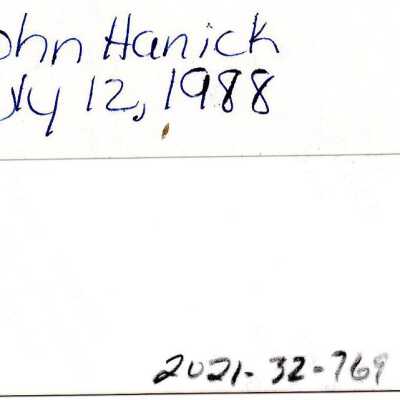 ohn Hanick
uly 12, 1988
2021-32-769